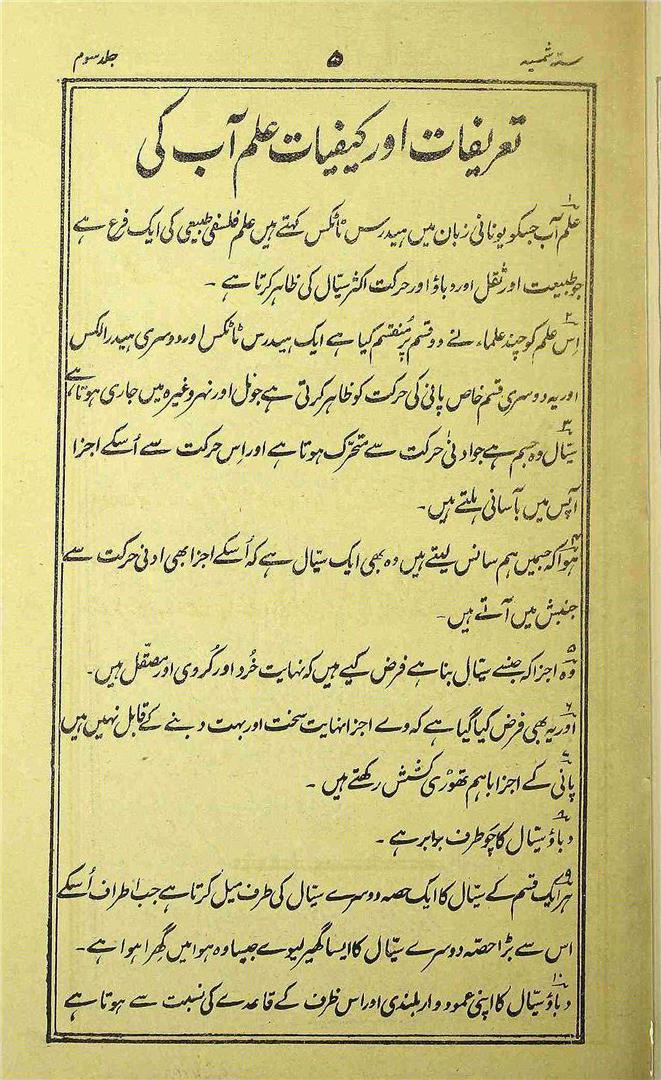 ستہ شمسیہ ۵ جلد سوم
تعریفات اور کیفیات علم آب کی
۱ علم آب جسکو یونانی زبان میں ہیدرس ٹاٹکس کہتے ہیں علم فلسفی طبیعی کی ایک فرع ہے
جو طبیعت اور ثقل اور دباؤ اور حرکت اکثر سیّال کی ظاہر کرتا ہے ۔
۲ اِس علم کو چند علماء نے دو قسم پر مُنقسم کیا ہے ایک ہیدرس ٹاٹکس اور دوسری ہیدرالکس
اور یہ دوسری قسم خاص پانی کی حرکت کو ظاہر کرتی ہے جو نل اور نہر وغیرہ میں جاری ہوتا ہے
۳ سیّال وہ جسم ہے جو ادنیٰ حرکت سے متحرّک ہوتا ہے اور اِس حرکت سے اُسکے اجزا
آپس میں بآسانی ہلتے ہیں ۔
۴ ہوا کہ جسمیں ہم سانس لیتے ہیں وہ بھی ایک سیّال ہے کہ اُسکے اجزا بھی ادنی حرکت سے
جنبش میں آتے ہیں ۔
۵ وہ اجزا کہ جنسے سیّال بنا ہے فرض کیے ہیں کہ نہایت خُرد اور کُروی اور مصقّل ہیں ۔
۶ اور یہ بھی فرض کیا گیا ہے کہ وے اجزا نہایت سخت اور بہت دبنے کے قابل نہیں ہیں
۷ پانی کے اجزا باہم تھوڑی کشش رکھتے ہیں ۔
۸ دباؤ سیّال کا چو طرف برابر ہے ۔
۹ ہر ایک قسم کے سیّال کا ایک حصہ دوسرے سیّال کی طرف میل کرتا ہے جب اطراف اُسکے
اس سے بڑا حصّہ دوسرے سیّال کا ایسا گھیر لیوے جیسا وہ ہوا میں گھرا ہوا ہے ۔
۱۰ دباؤ سیّال کا اپنی عمود وار بلندی اور اس ظرف کے قاعدے کی نسبت سے ہوتا ہے